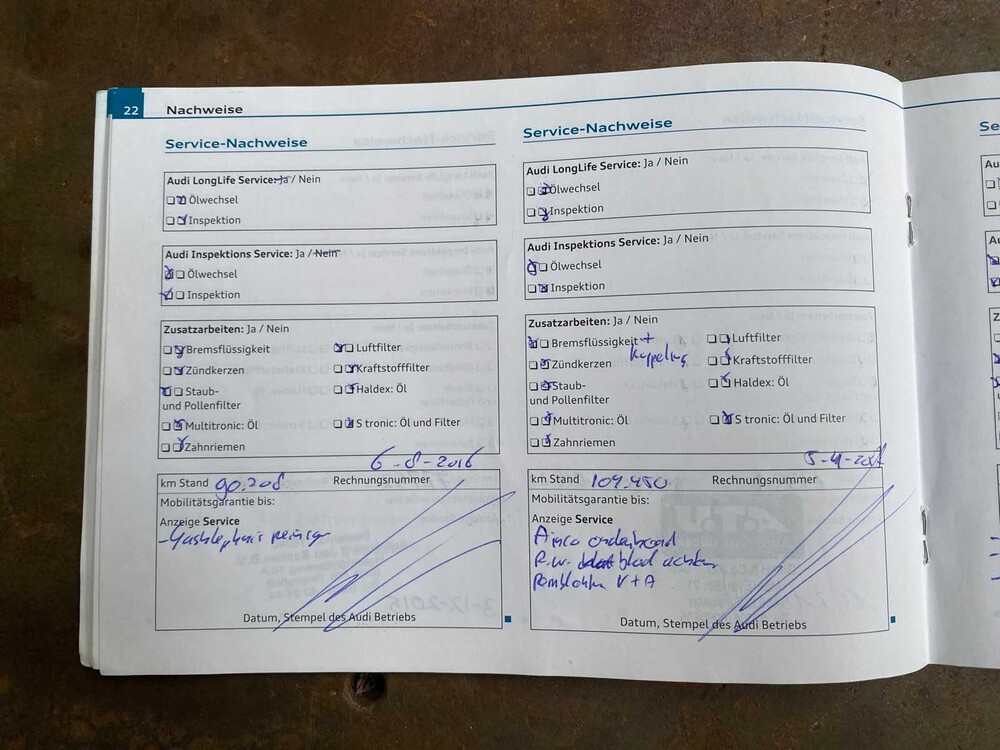 22 Nachweise
Service-Nachweise
Audi LongLife Service: Ja / Nein
Ölwechsel
Inspektion
Audi Inspektions Service: Ja / Nein
Ölwechsel
Inspektion
Zusatzarbeiten: Ja / Nein
Bremsflüssigkeit Luftfilter
Zündkerzen Kraftstofffilter
Staub- Haldex: Öl
und Pollenfilter
Multitronic: Öl S tronic: Öl und Filter
Zahnriemen
6-8-2016
km Stand 90.208 Rechnungsnummer
Mobilitätsgarantie bis:
Anzeige Service
Datum, Stempel des Audi Betriebs
Service-Nachweise
Audi LongLife Service: Ja / Nein
Ölwechsel
Inspektion
Audi Inspektions Service: Ja / Nein
Ölwechsel
Inspektion
Zusatzarbeiten: Ja / Nein
Bremsflüssigkeit + Luftfilter
Koppeling
Zündkerzen Kraftstofffilter
Staub- Haldex: Öl
und Pollenfilter
Multitronic: Öl S tronic: Öl und Filter
Zahnriemen
km Stand 109.450 Rechnungsnummer
Mobilitätsgarantie bis:
Anzeige Service
Airco onderhoud
R.W. blad achter
Remblokken V+A
Datum, Stempel des Audi Betriebs